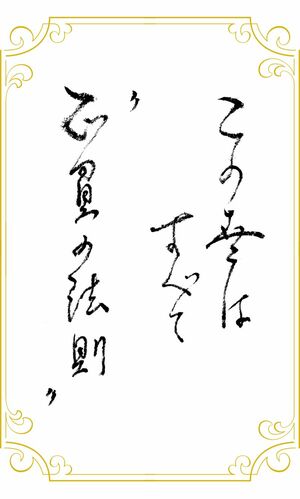 この世は
すべて
〝正負の法則〟